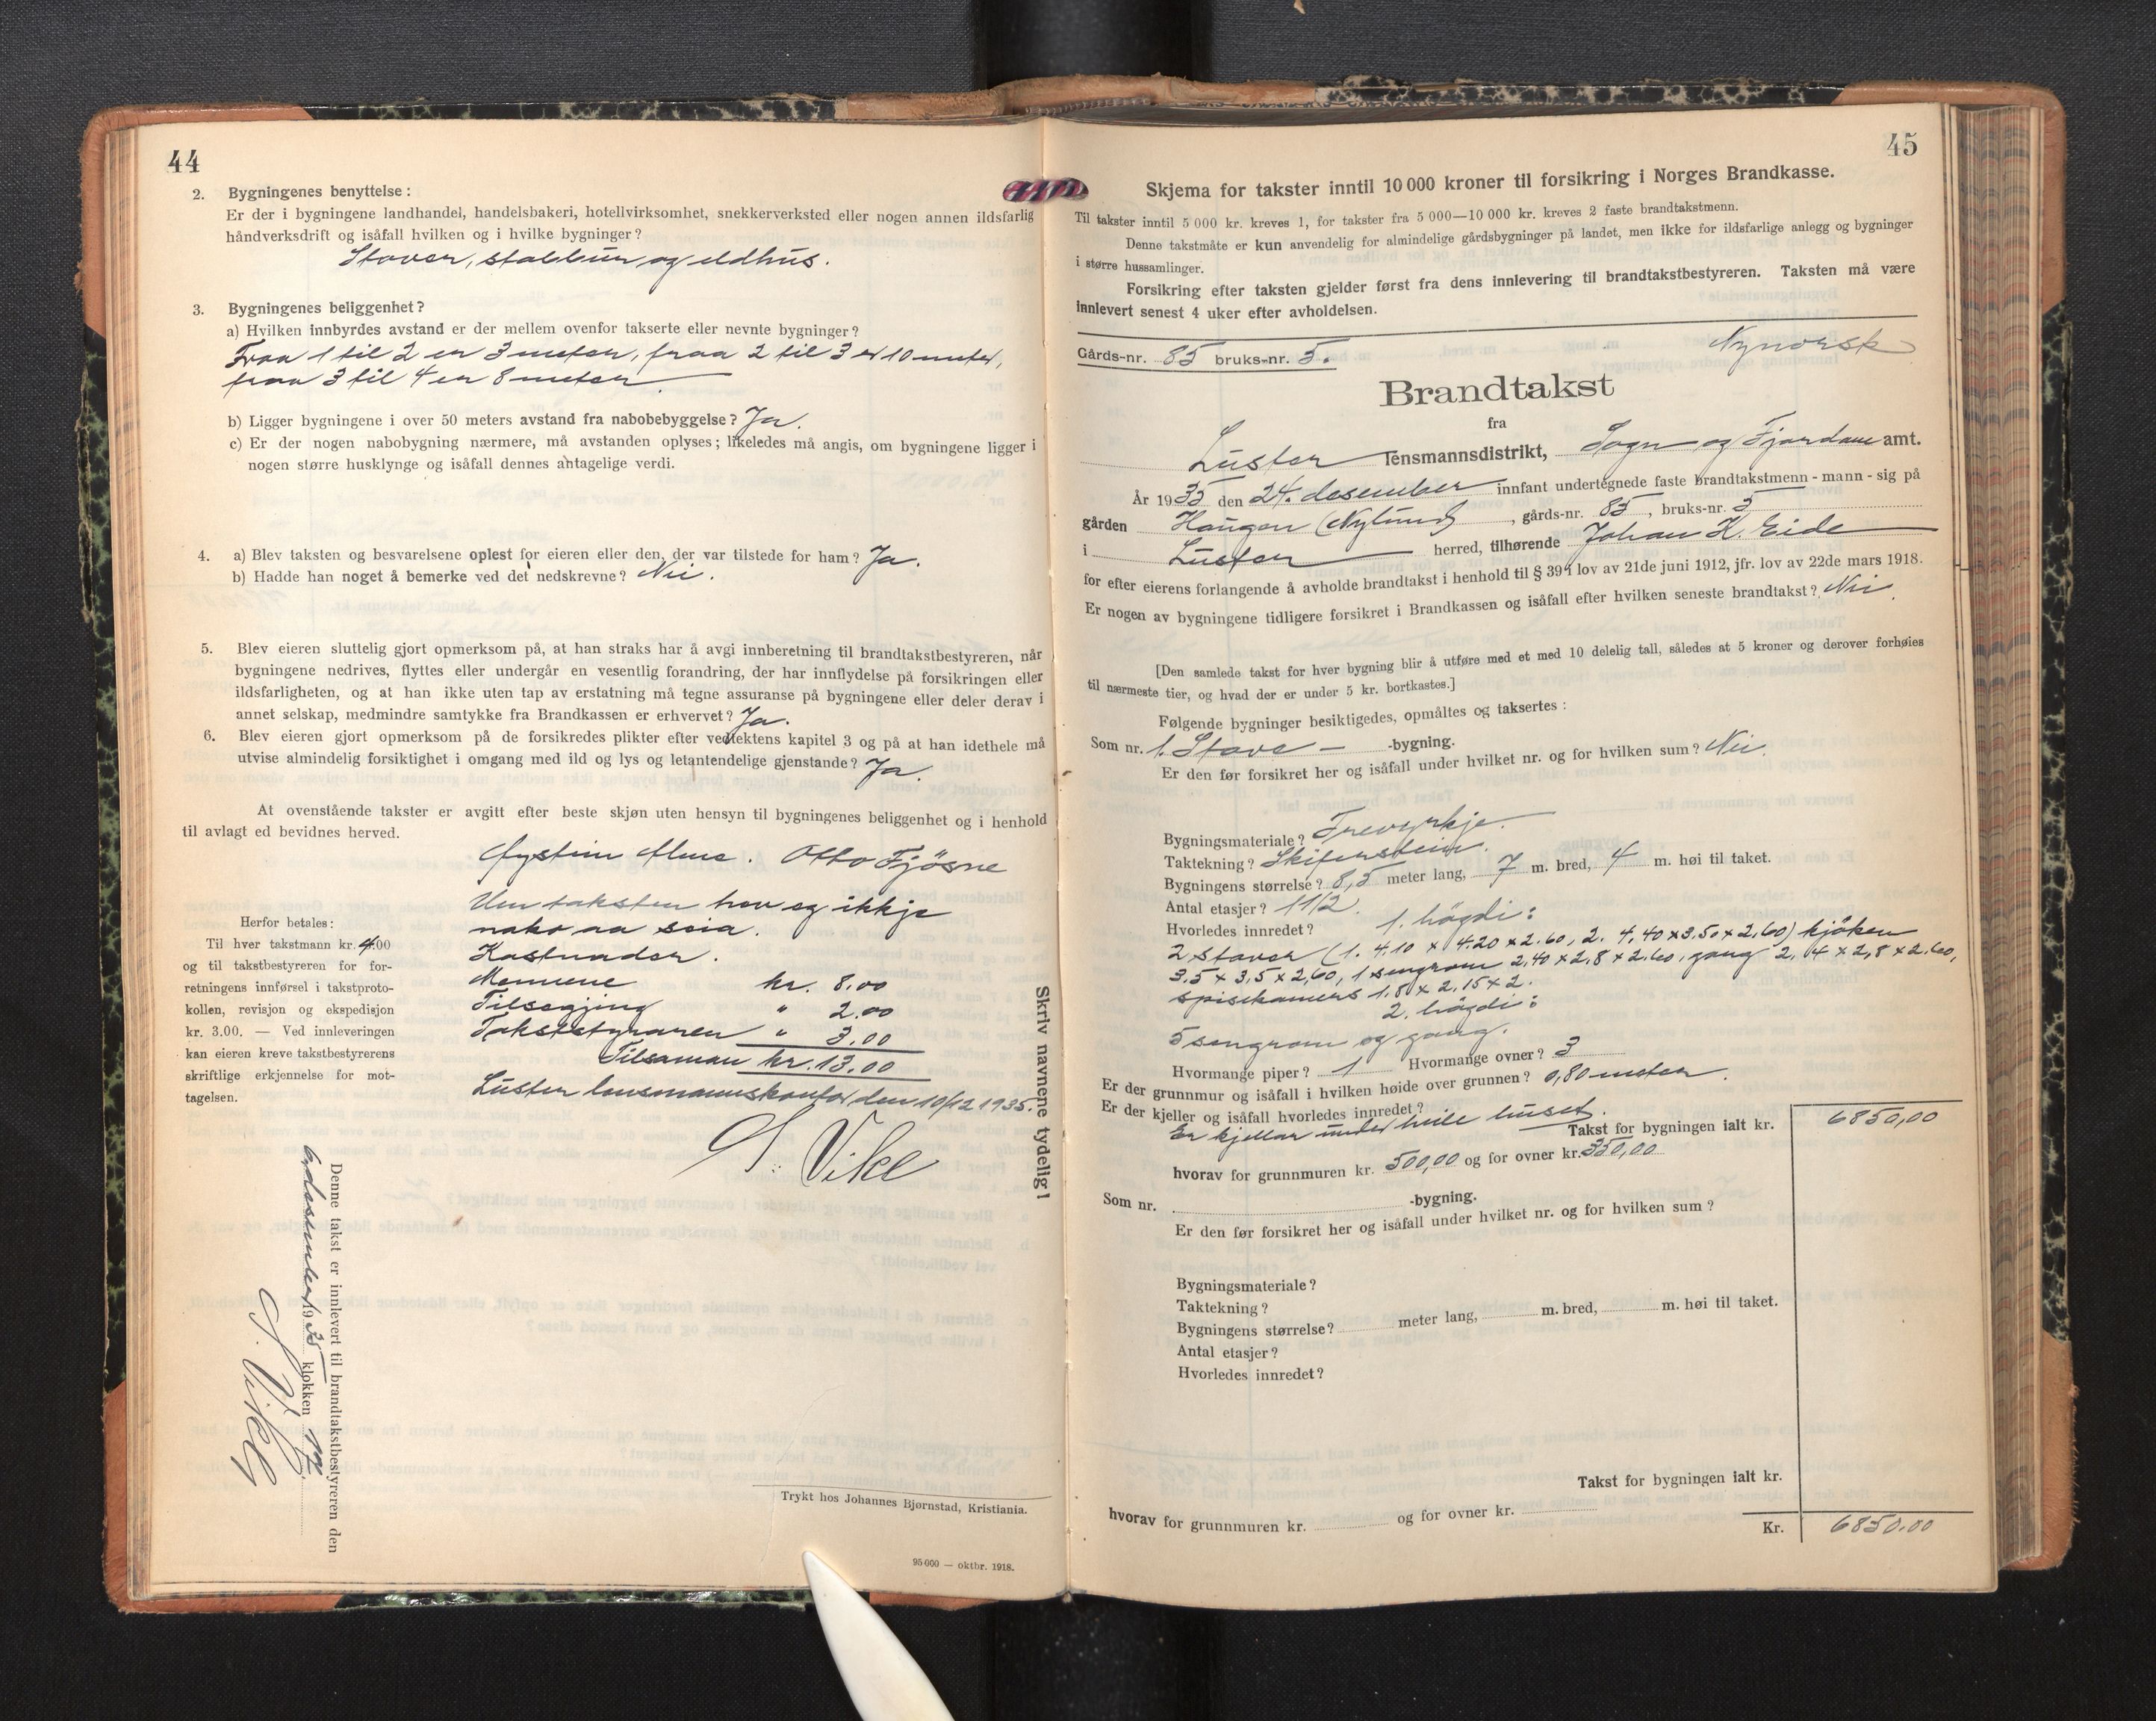 44
2. Bygningenes benyttelse:
Er der i bygningene landhandel, handelsbakeri, hotellvirksomhet, snekkerverksted eller nogen annen ildsfarlig
håndverksdrift og isåfall hvilken og i hvilke bygninger?
Stover, stabbur og eldhus.
3. Bygningenes beliggenhet?
a) Hvilken innbyrdes avstand er der mellem ovenfor takserte eller nevnte bygninger?
Fraa 1 til 2 er 3 meter, fraa 2 til 3 er 10 meter,
fraa 3 til 4 er 8 meter
b) Ligger bygningene i over 50 meters avstand fra nabobebyggelse? Ja.
c) Er der nogen nabobygning nærmere, må avstanden oplyses; likeledes må angis, om bygningene ligger i
nogen større husklynge og isåfall dennes antagelige verdi.
4. a) Blev taksten og besvarelsene oplest for eieren eller den, der var tilstede for ham? Ja.
b) Hadde han noget å bemerke ved det nedskrevne? Nei.
5. Blev eieren sluttelig gjort opmerksom på, at han straks har å avgi innberetning til brandtakstbestyreren, når
bygningene nedrives, flyttes eller undergår en vesentlig forandring, der har innflydelse på forsikringen eller
ildsfarligheten, og at han ikke uten tap av erstatning må tegne assuranse på bygningene eller deler derav i
annet selskap, medmindre samtykke fra Brandkassen er erhvervet? Ja.
6. Blev eieren gjort opmerksom på de forsikredes plikter efter vedtektens kapitel 3 og på at han idethele må
utvise almindelig forsiktighet i omgang med ild og lys og letantendelige gjenstande? Ja.
At ovenstående takster er avgitt efter beste skjøn uten hensyn til bygningenes beliggenhet og i henhold
til avlagt ed bevidnes herved.
Otto Fjösne
Um taksten hev eg ikkje
noko aa seia.
Kostnader.
Mennene kr. 8.00
Tilsegjing " 2.00
Takststyraren " 3.00
Tilsaman kr. 13.00
Luster lensmannskontor den 10/12 1935.
S. Vike
Herfor betales:
Til hver takstmann kr. 4.00
og til takstbestyreren for for-
retningens innførsel i takstproto-
kollen, revisjon og ekspedisjon
kr. 3.00. — Ved innleveringen
kan eieren kreve takstbestyrerens
skriftlige erkjennelse for mot-
tagelsen.
Skriv navnene tydelig!
Denne takst er innlevert til brandtakstbestyreren den
desember 1935 klokken 12
S. Vike
Trykt hos Johannes Bjørnstad, Kristiania.
95 000 — oktbr. 1918.
45
Skjema for takster inntil 10 000 kroner til forsikring i Norges Brandkasse.
Til takster inntil 5 000 kr. kreves 1, for takster fra 5 000—10 000 kr. kreves 2 faste brandtakstmenn.
Denne takstmåte er kun anvendelig for almindelige gårdsbygninger på landet, men ikke for ildsfarlige anlegg og bygninger
i større hussamlinger.
Forsikring efter taksten gjelder først fra dens innlevering til brandtakstbestyreren. Taksten må være
innlevert senest 4 uker efter avholdelsen.
Gårds-nr. 85 bruks-nr. 5. Nynorsk
Brandtakst
fra
Luster lensmannsdistrikt, Sogn og Fjordane amt.
År 1935 den 24. desember innfant undertegnede faste brandtakstmenn - mann - sig på
gården Haugen (Nylund) , gårds-nr. 85, bruks-nr. 5
i Luster herred, tilhørende Johan K. Eide
for efter eierens forlangende å avholde brandtakst i henhold til § 39 i lov av 21de juni 1912, jfr. lov av 22de mars 1918.
Er nogen av bygningene tidligere forsikret i Brandkassen og isåfall efter hvilken seneste brandtakst? Nei.
[Den samlede takst for hver bygning blir å utføre med et med 10 delelig tall, således at 5 kroner og derover forhøies
til nærmeste tier, og hvad der er under 5 kr. bortkastes.]
Følgende bygninger besiktigedes, opmåltes og taksertes:
Som nr. 1. Stove - -bygning.
Er den før forsikret her og isåfall under hvilket nr. og for hvilken sum? Nei.
Bygningsmateriale? Trevyrkje.
Taktekning? Skiferstein.
Bygningens størrelse? 8,5 meter lang, 7 m. bred, 4 m. høi til taket.
Antal etasjer? 1 1/2.
Hvorledes innredet? 1. högdi:
2 stover (1. 4.10 x 4.20 x 2.60, 2. 4,40 x 3.50 x 2,60) kjöken
3,5 x 3,5 x 2,60, 1 sengrom 2,40 x 2,8 x 2.60, gang 2,4 x 2,8 x 2.60,
spisekamers 1,8 x 2,15 x 2.
2. högdi:
5 sengrom og gang.
Hvormange piper? 1 Hvormange ovner? 3
Er der grunnmur og isåfall i hvilken høide over grunnen? 0,80 meter.
Er der kjeller og isåfall hvorledes innredet?
Er kjellar under heile huset.
Takst for bygningen ialt kr. 6850,00
hvorav for grunnmuren kr. 500,00 og for ovner kr. 350,00
Som nr. -bygning.
Er den før forsikret her og isåfall under hvilket nr. og for hvilken sum?
Bygningsmateriale?
Taktekning?
Bygningens størrelse? meter lang, m. bred, m. høi til taket.
Antal etasjer?
Hvorledes innredet?
Takst for bygningen ialt kr.
hvorav for grunnmuren kr. og for ovner kr.
Kr. 6850.00